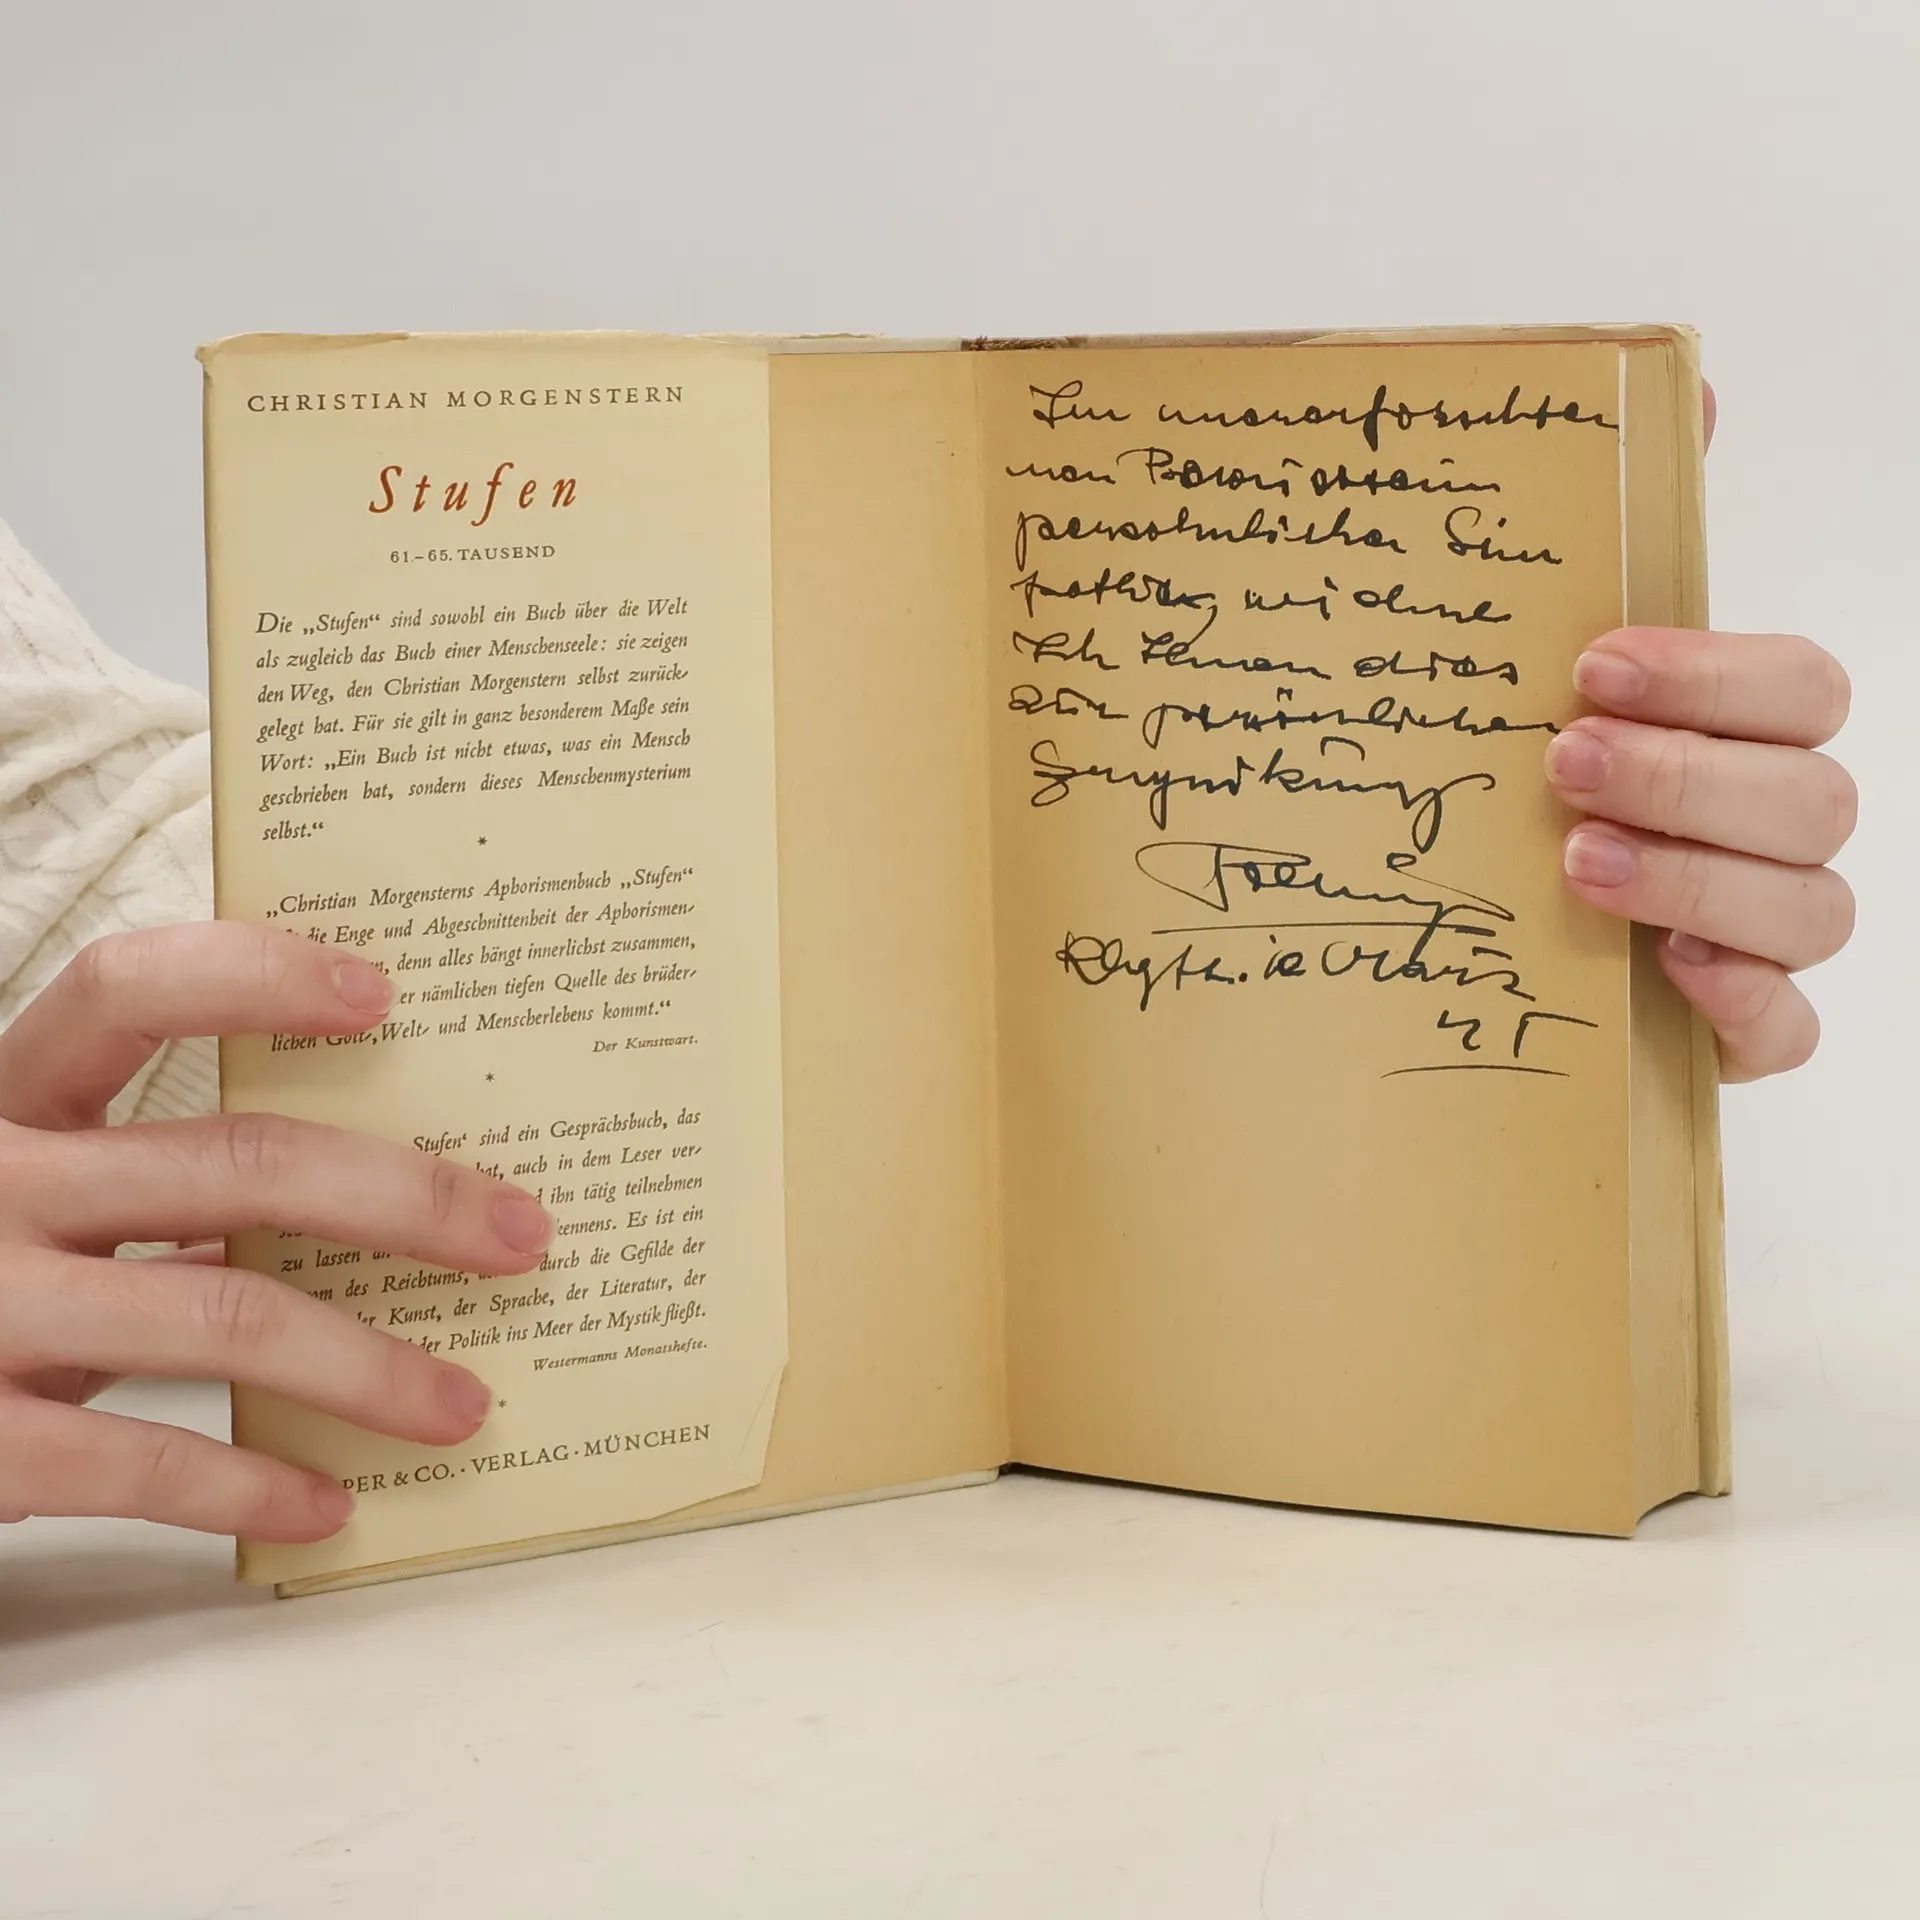 CHRISTIAN MORGENSTERN
Stufen
61.–65. TAUSEND
Die „Stufen“ sind sowohl ein Buch über die Welt
als zugleich das Buch einer Menschenseele: sie zeigen
den Weg, den Christian Morgenstern selbst zurück-
gelegt hat. Für sie gilt in ganz besonderem Maße sein
Wort: „Ein Buch ist nicht etwas, was ein Mensch
geschrieben hat, sondern dieses Menschenmysterium
selbst.“
*
„Christian Morgensterns Aphorismenbuch „Stufen“
die Enge und Abgeschnittenheit der Aphorismen-
denn alles hängt innerlichst zusammen,
er nämlichen tiefen Quelle des brüder-
lichen Gott-, Welt- und Menscherlebens kommt.“
Der Kunstwart.
*
Stufen‘ sind ein Gesprächsbuch, das
hat, auch in dem Leser ver-
ihn tätig teilnehmen
kennens. Es ist ein
zu lassen durch die Gefilde der
des Reichtums,
der Kunst, der Sprache, der Literatur, der
der Politik ins Meer der Mystik fließt.
Westermanns Monatshefte.
*
PER & CO. · VERLAG · MÜNCHEN
Im unererforschten
Bewusstein
persohnlicher Sim
pathie, widme
Ich Ihnen dies
zur persönlichen